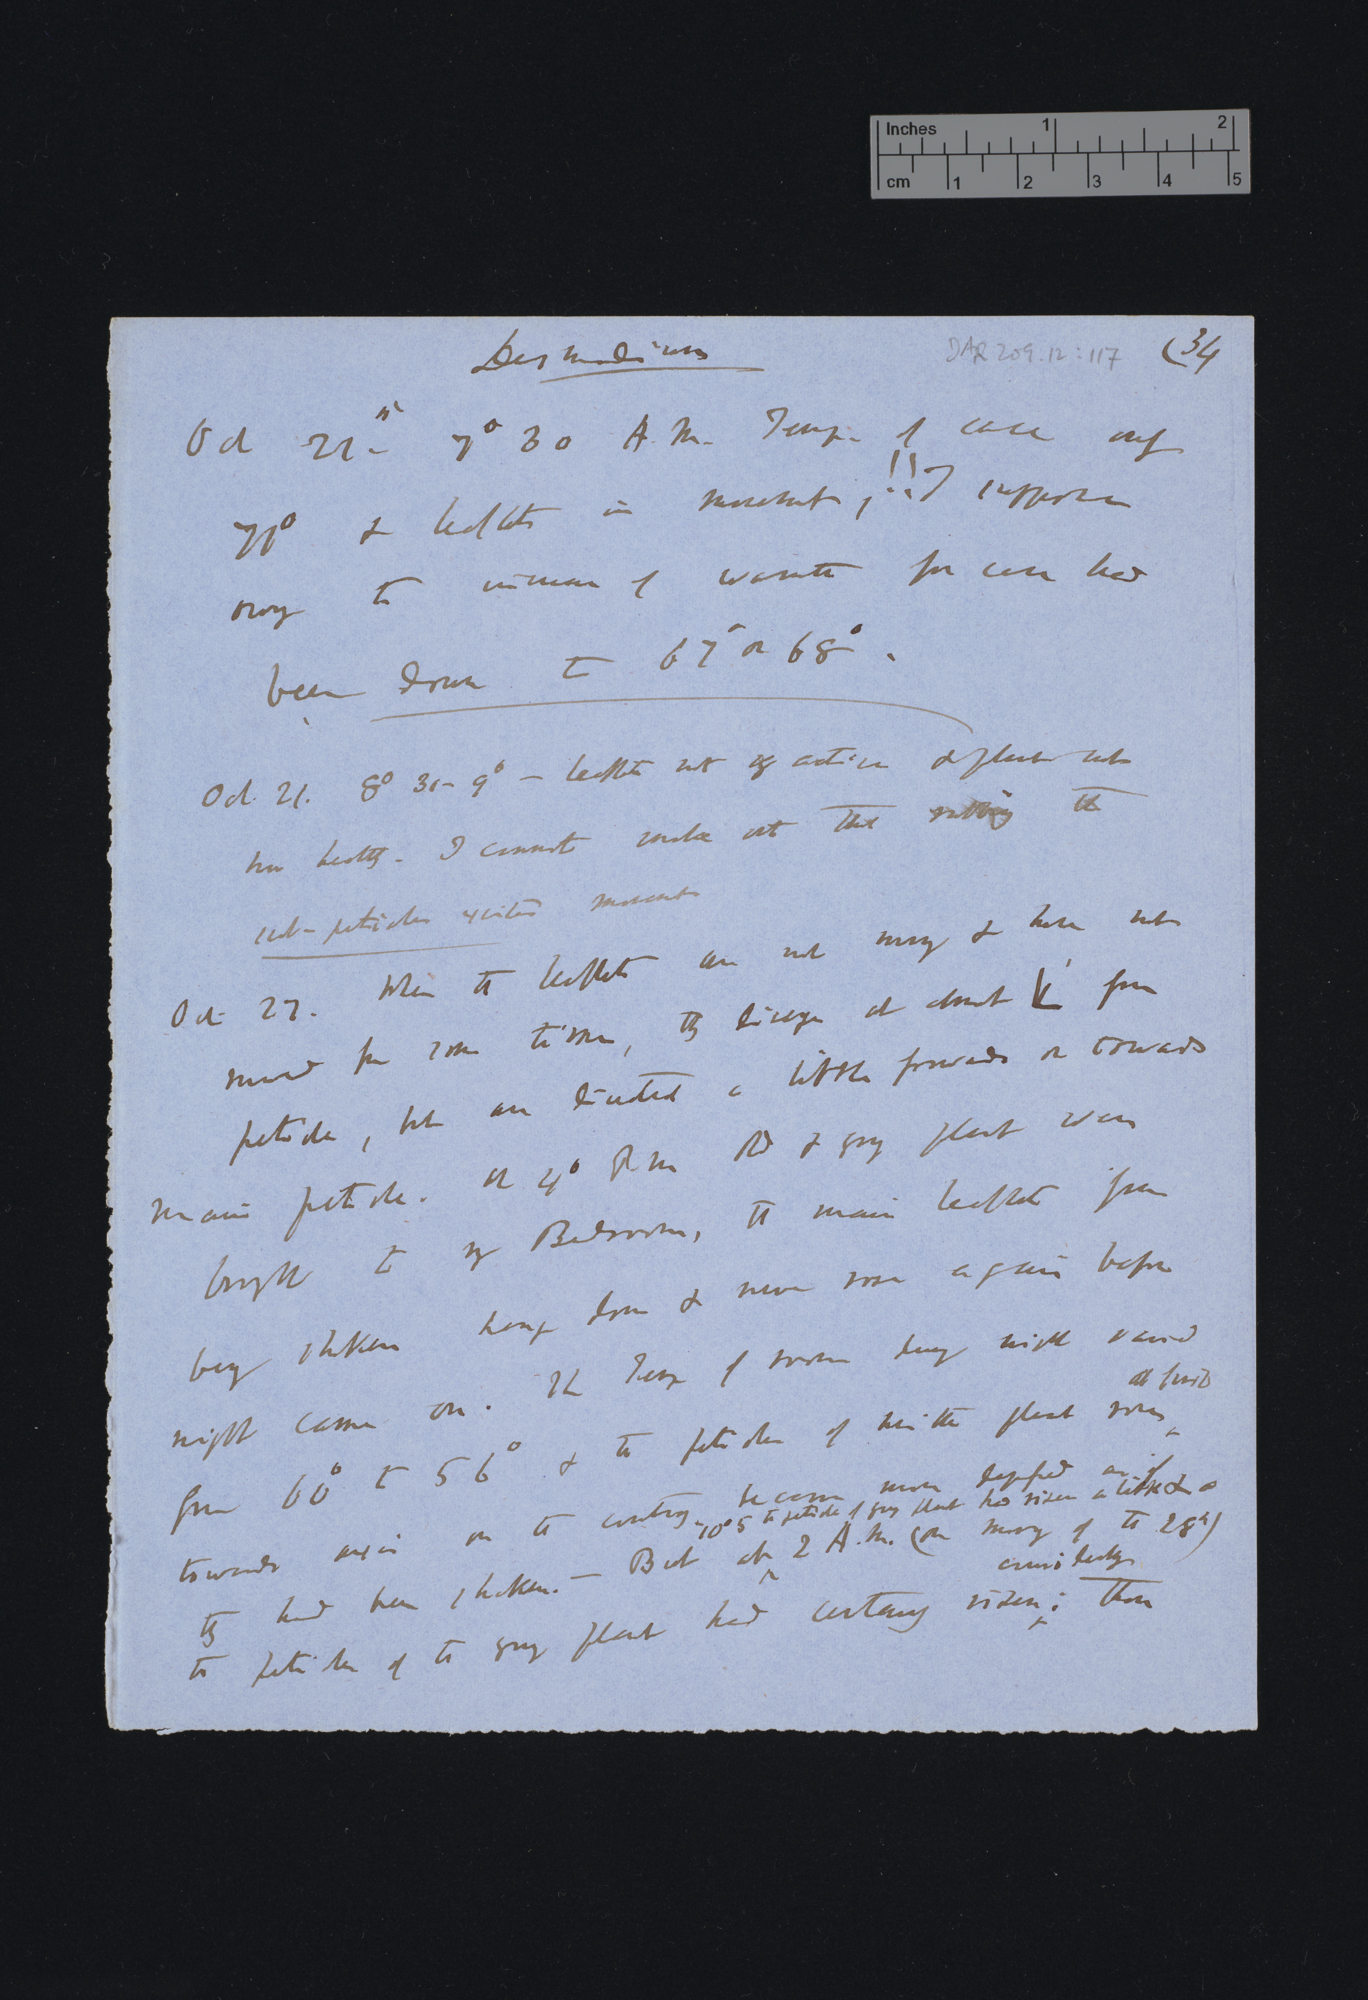 Inches 1 2
cm 1 2 3 4 5
Desmodium
DAR 209.12:117
(34
Oct 21st 7° 30 A.M. Temp. of case only
71° & leaflets in movement, !! I suppose
owing to increase of warmth for case had
been down to 67° or 68°.
Oct. 21. 8° 30 - 9° — leaflets not active & plant not
healthy. I cannot make out that rubbing the
sub-petioles excites movement
Oct 27. When the leaflets are not moving & have not
moved for some time, they diverge at about from
petiole, but are directed a little forwards or towards
main petiole. At 4° P.m. Old & young plant were
brought to my Bedroom, the main leaflets from
being shaken hung down & never rose again before
night came on. The Temp of room during night varied
from 60° to 56° & the petioles of neither plant rose
at first
towards axis on the contrary became more depressed as if
10° 5 the petiole of young plant had risen a little & a
they had been shaken. — But at 2 A.M. (on morning of the 28th)
considerably
the petioles of the young plant had certainly risen; then